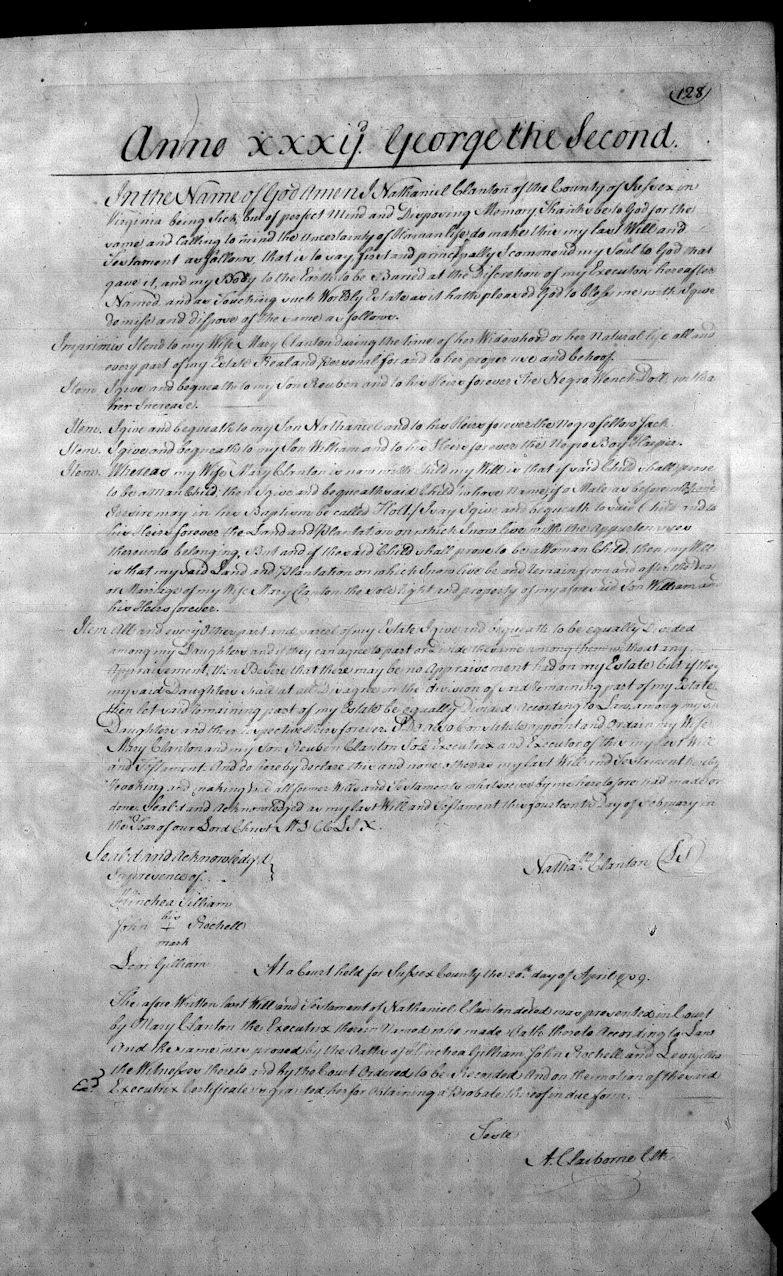 128
Anno XXXIJ. George the Second.
In the Name of God Amen I Nathaniel Clanton of the County of Sussex in
Virginia being Sick but of perfect Mind and Disposing Memory Thanks be to God for the
same and Calling to mind the uncertainty of Human life, do make this my last Will and
Testament as follows, that is to say, first and principally I commend my Soul to God that
gave it, and my Body to the Earth to be Buried at the Discretion of my Executors hereafter
Named. and as Touching such Worldly Estate as it hath pleased God to bless me with I give
demise and dispose of the same as follows.
Imprimis I lend to my Wife Mary Clanton during the time of her Widowhood or her Natural life all and
every part of my Estate Real and Personal for and to her proper use and behoof.
Item I give and bequeath to my Son Reuben and to his Heirs forever the Negro Wench Doll, with
her Increase.
Item. I give and bequeath to my Son Nathaniel and to his Heirs forever the Negro fellow Jack
Item. I give and bequeath to my Son William and to his Heirs forever the Negro Boy Harper.
Item. Whereas my Wife Mary Clanton is now with Child my Will is that if said Child shall prove
to be a Man Child then I give and bequeath said Child whose Name if a Male as before
Desire may in his Baptism be called Holt I say I give and bequeath to said Child and to
his Heirs forever the Land and Plantation on which I now live with the Appurtenances
thereunto belonging, But and if the said Child shall prove to be a Woman Child then my Will
is that my said Land and Plantation on which I now live be and remain from and after the Death
or Marriage of my Wife Mary Clanton the sole right and property of my aforesaid Son William and
his Heirs forever.
Item All and every Other part and parcel of my Estate I give and bequeath to be equally Divided
among my Daughters and if they can agree to part or divide the same among them without any
Appraisement, then I Desire that there may be no Appraisement had on my Estate, but if they
my said Daughters shall at all Disagree in the division of said Remaining part of my Estate,
then let said remaining part of my Estate be equally Divided According to Law, among my
Daughters and their respective Heirs forever. I Do also Constitute appoint and Ordain my Wife
Mary Clanton and my Son Reuben Clanton Sole Executrix and Executor of this my last Will
and Testament. And do hereby declare this and none other as my last Will and Testament hereby
Revoking and making Void all former Wills and Testaments whatsoever by me heretofore had made or
done. Seal'd and Acknowledged as my last Will and Testament this fourteenth Day of February in
the Year of our Lord Christ MDCCLIX.
Seal'd and Acknowledg'd
In presence of
Nathal. Clanton (LS)
Hinchea Gilliam
John his + mark Rochell
Levi Gilliam
At a Court held for Sussex County the 20th day of April 1759.
The afore Written last Will and Testament of Nathaniel Clanton deced was presented in Court
by Mary Clanton the Executrix therein Named who made Oath thereto According to Law
And the same was proved by the Oaths of Hinchea Gilliam John Rochell and Levi Gilliam
the Witnesses thereto and by the Court Ordered to be Recorded And on the motion of the said
Executrix Certificate is granted her for Obtaining a Probate thereof in due form.
Teste
A. Claiborne Clk